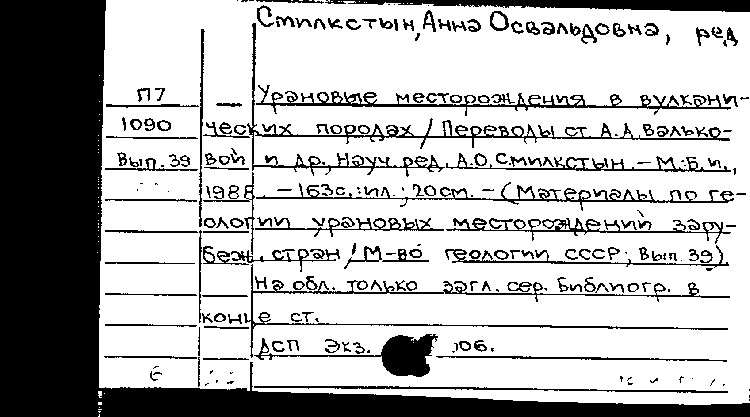 Смилкстын, Анна Освальдовна, ред
П7 — Урановые месторождения в вулкани-
1090 ческих породах / Переводы ст. А.А. Валько-
Вып. 39 вой и др., Науч. ред. А.О. Смилкстын. – М.: Б.и.,
1988. – 163с.: ил.; 20см. – (Материалы по ге-
ологии урановых месторождений зару-
беж. стран / М-во геологии СССР; Вып. 39).
На обл. только загл. сер. Библиогр. в
конце ст.
ДСП Экз. 06.
6